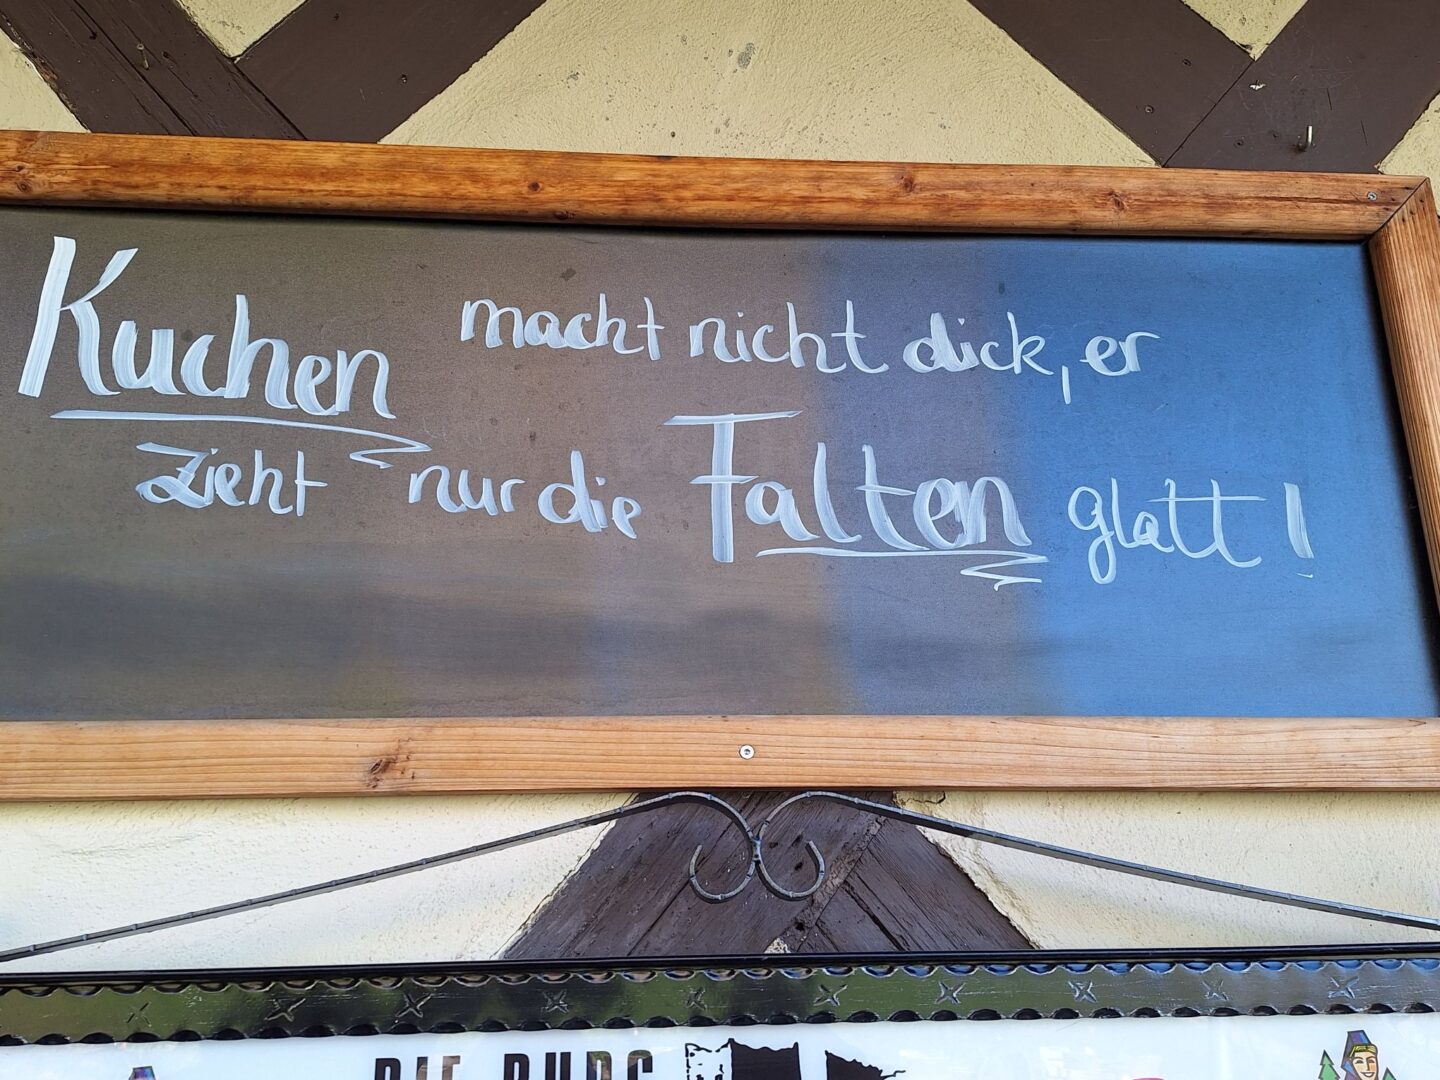 Kuchen macht nicht dick, er
zieht nur die Falten glatt!
DIE BURG